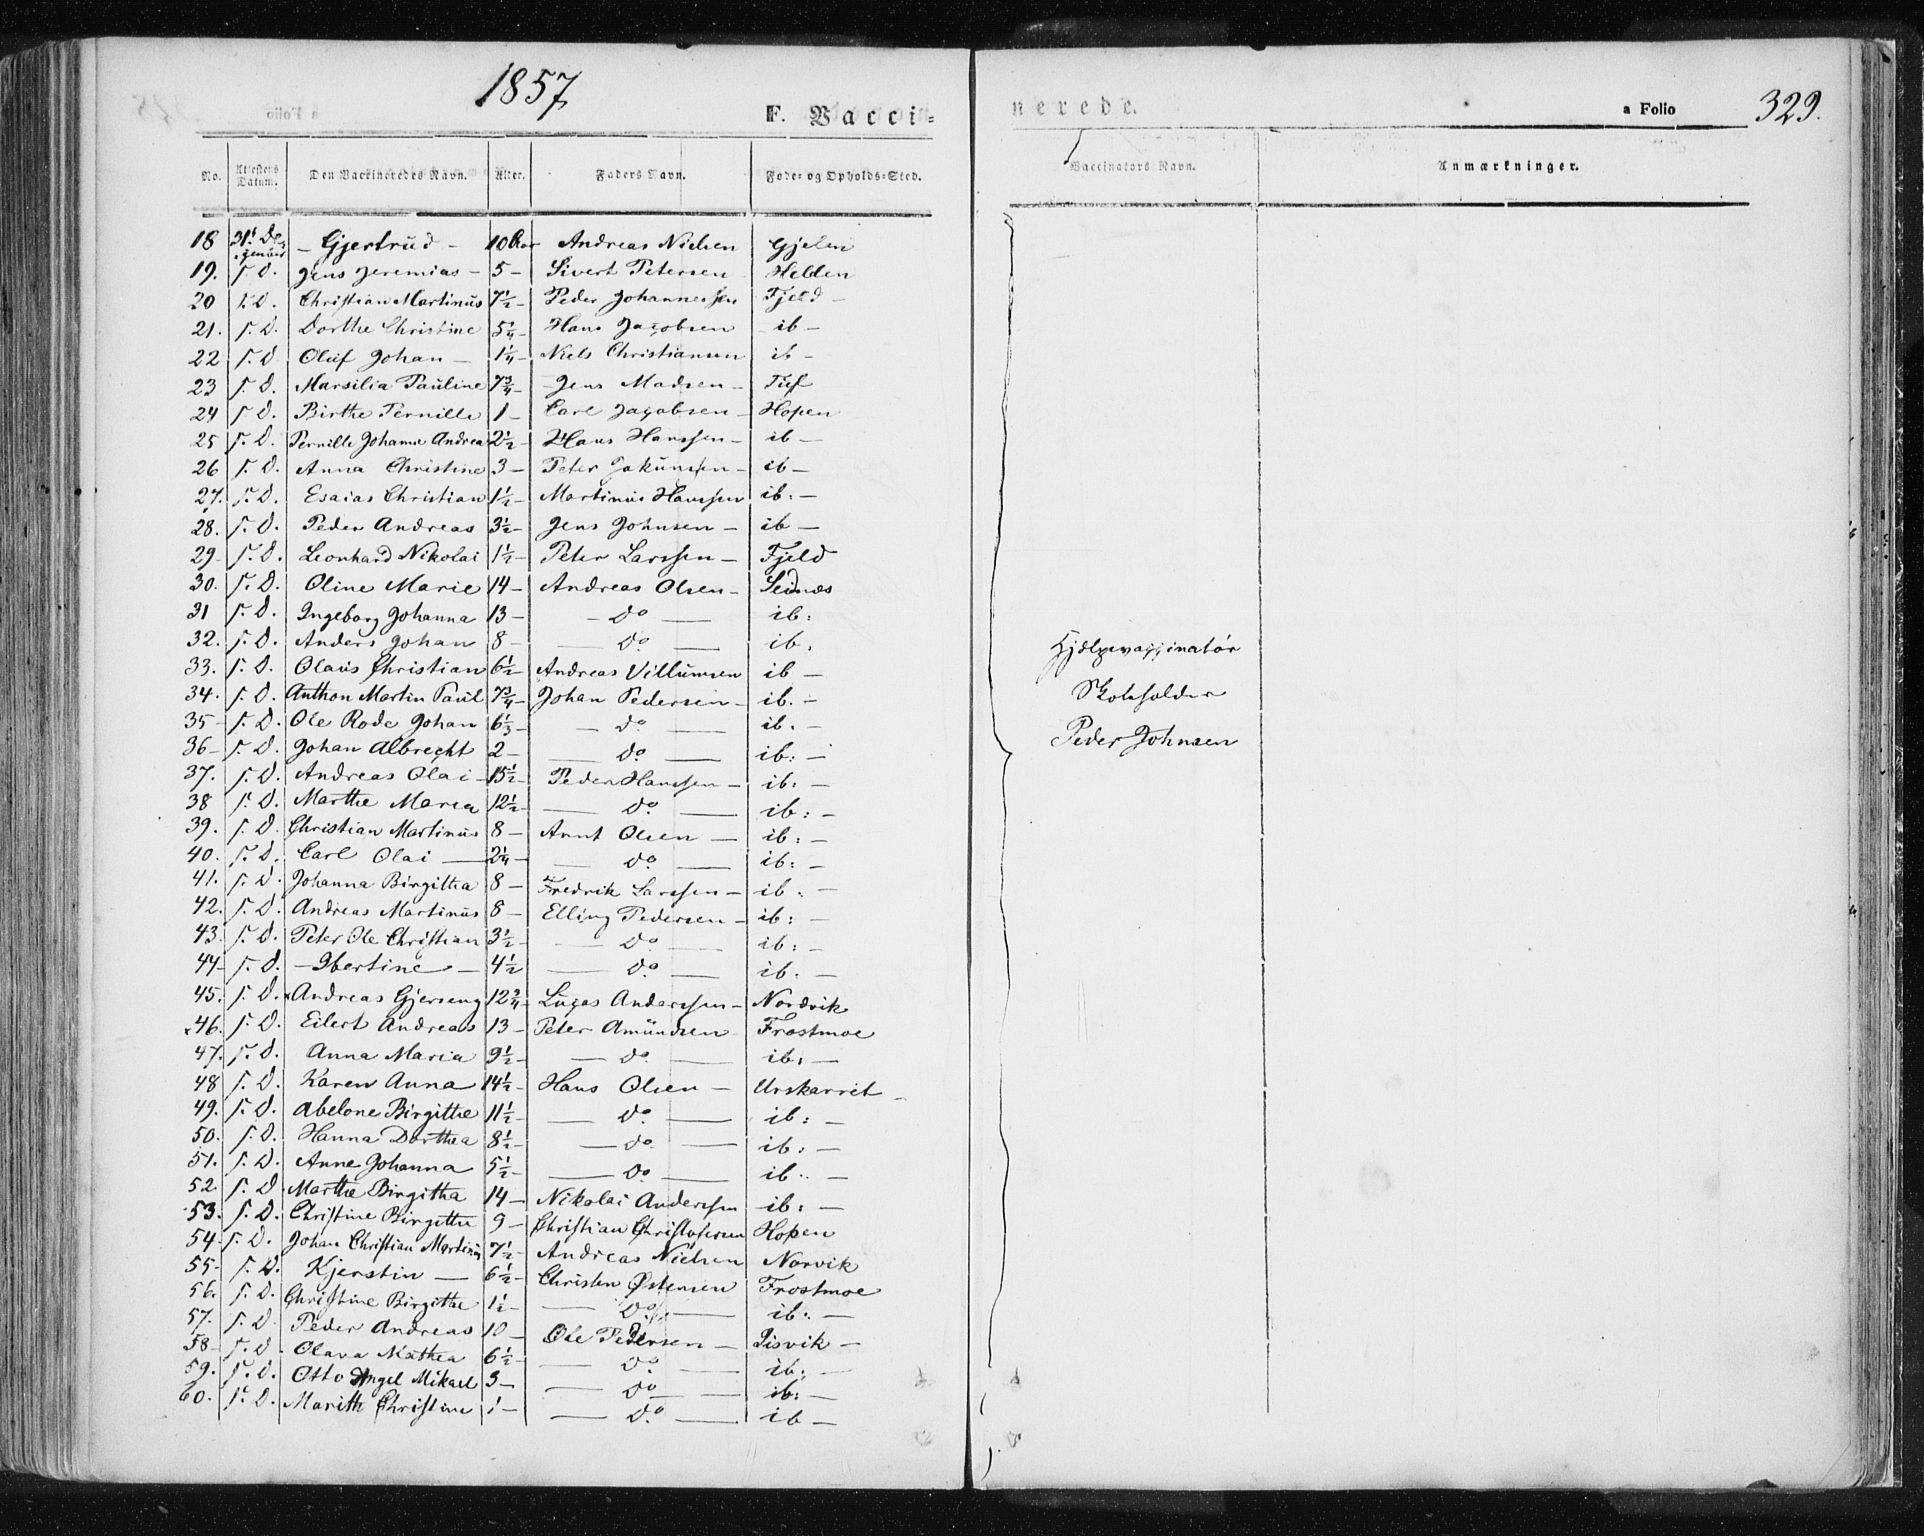 1857
F. Vacci=
nerede.
a Folio 329.
No. Attestens Datum. Den Vaccineredes Navn. Alter. Faders Navn. Føde- og Opholds-Sted. Vaccinators Navn. Anmærkninger.
18 31' Gjertrud - 10 Aar Andreas Nielsen
19. s. D. Jens Jeremias - 5 - Sivert Petersen Helden
20 s. D. Christian Martinus 7½ - Peder Johannessen Fjeld -
21. s. D. Dorthe Christine 5¼ - Hans Jacobsen - ib -
22 s. D. Oluf Johan - 1¼ - Niels Christiansen ib -
23 s. D. Marsilia Pauline 7¾ - Jens Madsen - Tuf
24 s. D. Birthe Pernille 1 - Carl Jacobsen - Hopen
25 s. D. Pernille Johanna Andrea 2½ - Hans Hanssen - ib -
26 s. D. Anna Christine 3 - Peter - ib -
27. s. D. Esaias Christian 1½ - Martinus Hanssen ib: -
28. s. D. Peder Andreas 3½ - Jens Johnsen - ib -
29 s. D. Leonhard Nikolai 1½ - Peter Larssen - Fjeld
30. s. D. Oline Marie 14 - Andreas Olsen - Seines
31 s. D. Ingeborg Johanna 13 - - Do - ib:
32. s. D. Anders Johan 8 - Do. - ib.
33. s. D. Olaus Christian 6½ - Andreas Villumsen ib -
34. s. D. Anthon Martin Paul 7¾ - Johan Pedersen - ib. -
35 - s. D. Ole Rode Johan 6⅓ - - Do. - ib. -
36 - s. D. Johan Albrecht 2 - - Do. - ib: -
37. s. D. Andreas Olai - 15½ - Peder Hanssen - ib: -
38 s. D. Marthe Maria 12½ - - Do. - ib: -
39. s. D. Christian Martinus 8 - Arnt Olsen - ib: -
40. s. D. Carl Olai - 2¼ - - Do. - ib: -
41. s. D. Johanna Birgitha 8 - Fredrik Larssen - ib. -
42. s. D. Andreas Martinus 8 - Elling Pedersen - ib: -
43. s. D. Peter Ole Christian 3½ - - Do. - ib: -
44 - s. D. - Ibertine - 4½ - Do. - ib. -
45. s. D. Andreas Gjerseng 12¾ - Lucas Anderssen - Nordvik
x46. s. D. Eilert Andreas 13 - Peter Amundsen Frostmoe
47. s. D. Anna Maria 9½ - - Do. - ib: -
48 s. D. Karen Anna 14½ - Hans Olsen - Urskarret -
49. s. D. Abelone Birgithe 11½ - - Do. - ib: -
50. s. D. Hanna Dorthea 8½ - - Do. - ib: -
51. s. D. Anne Johanna 5½ - - Do. - ib. -
52. s. D. Marthe Birgitha 14 - Nikolai Anderssen ib: -
53. s. D. Christine Birgithe 9 - Christian Christofersen Hopen
54. s. D. Johan Christian Martinus 7½ - Andreas Nielsen Norvik
55 - s. D. Kjerstin - 6½ - Christen Østensen Frostmoe
56. s. D. Christine Birgithe 1½ - - Do. - ib. -
57. s. D. Peder Andreas 10 - Ole Pedersen - Lisvik -
58 - s. D. Olava Mathea 6½ - - Do. - ib: -
59. s. D. Otto Angel Mikael 3 - - Do - ib: -
60. s. D. Marith Christine 1 - - Do. - ib -
Hjælpevaccinatør
Skoleholder
Peder Johnsen